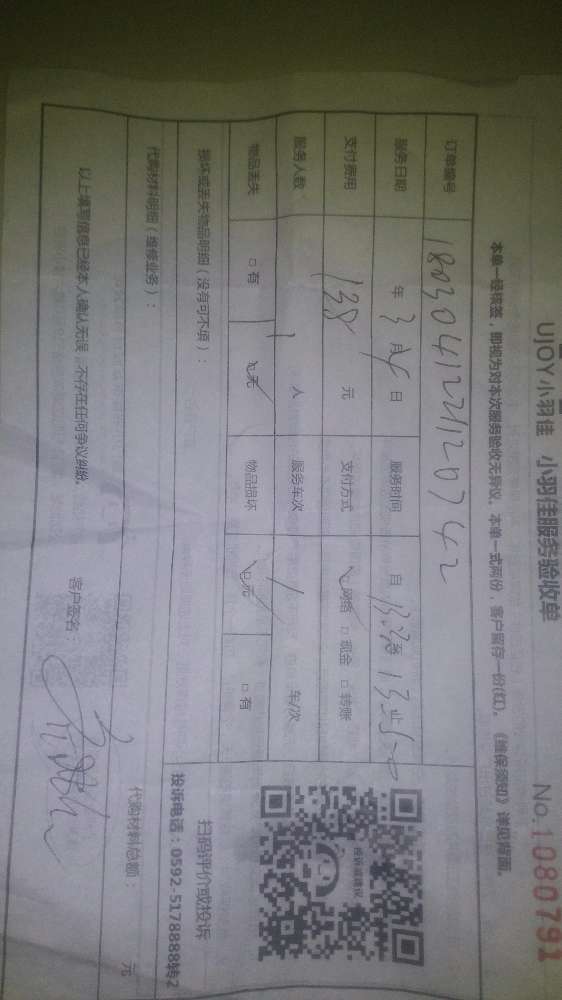 UJOY小羽佳 小羽佳服务验收单
No.1080791
本单一经核签，即视为对本次服务验收无异议。本单一式两份，客户留存一份(红)。《维保须知》详见背面。
订单编号 180304122112074 2
服务日期 年 3 月 日 服务时间 自 止
支付费用 138 元 支付方式 网络 □ 现金 □ 转账
服务人数 1 人 服务车次 1 车/次
物品丢失 □ 有 无 物品损坏 无 □ 有
损坏或丢失物品明细（没有可不填）：
扫码评价或投诉
投诉电话：0592-5178888转2
投诉或建议
代购材料明细（维修业务）：
代购材料总额： 元
以上填写信息已经本人确认无误，不存在任何争议纠纷。
客户签名：